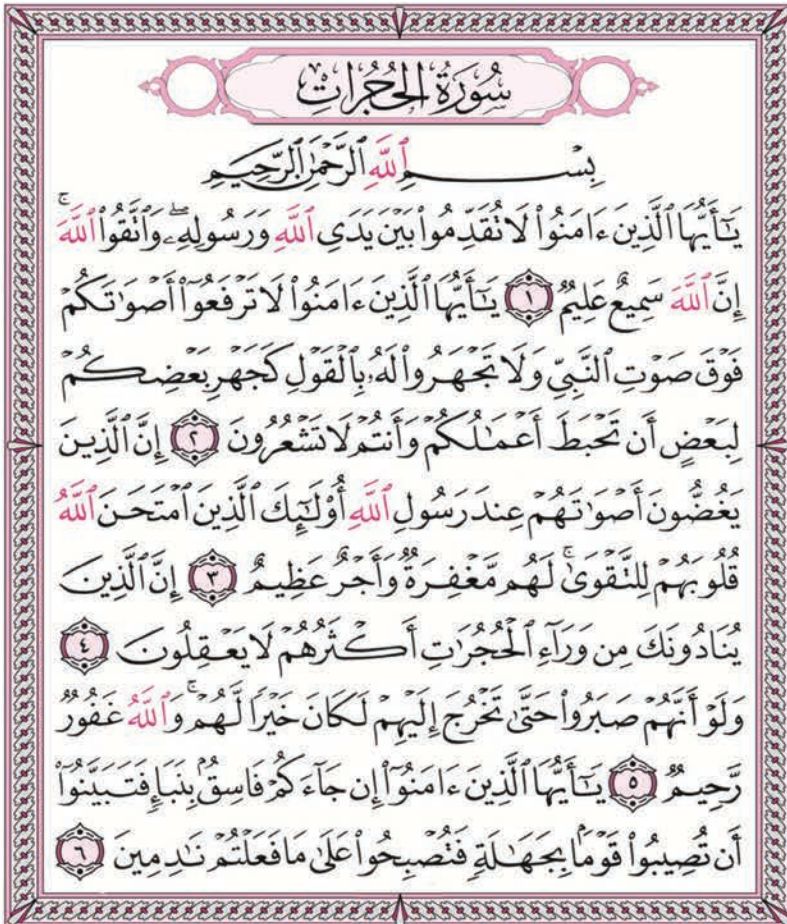 سُورَةُ الحُجُرَاتِ
بِسْمِ ٱللَّهِ ٱلرَّحْمَٰنِ ٱلرَّحِيمِ
يَٰٓأَيُّهَا ٱلَّذِينَ ءَامَنُواْ لَا تُقَدِّمُواْ بَيْنَ يَدَيِ ٱللَّهِ وَرَسُولِهِۦۖ وَٱتَّقُواْ ٱللَّهَۚ
إِنَّ ٱللَّهَ سَمِيعٌ عَلِيمٌ ١ يَٰٓأَيُّهَا ٱلَّذِينَ ءَامَنُواْ لَا تَرْفَعُوٓاْ أَصْوَٰتَكُمْ
فَوْقَ صَوْتِ ٱلنَّبِيِّ وَلَا تَجْهَرُواْ لَهُۥ بِٱلْقَوْلِ كَجَهْرِ بَعْضِكُمْ
لِبَعْضٍ أَن تَحْبَطَ أَعْمَٰلُكُمْ وَأَنتُمْ لَا تَشْعُرُونَ ٢ إِنَّ ٱلَّذِينَ
يَغُضُّونَ أَصْوَٰتَهُمْ عِندَ رَسُولِ ٱللَّهِ أُوْلَٰٓئِكَ ٱلَّذِينَ ٱمْتَحَنَ ٱللَّهُ
قُلُوبَهُمْ لِلتَّقْوَىٰۚ لَهُم مَّغْفِرَةٌ وَأَجْرٌ عَظِيمٌ ٣ إِنَّ ٱلَّذِينَ
يُنَادُونَكَ مِن وَرَآءِ ٱلْحُجُرَٰتِ أَكْثَرُهُمْ لَا يَعْقِلُونَ ٤
وَلَوْ أَنَّهُمْ صَبَرُواْ حَتَّىٰ تَخْرُجَ إِلَيْهِمْ لَكَانَ خَيْرًا لَّهُمْۚ وَٱللَّهُ غَفُورٌ
رَّحِيمٌ ٥ يَٰٓأَيُّهَا ٱلَّذِينَ ءَامَنُوٓاْ إِن جَآءَكُمْ فَاسِقٌۢ بِنَبَإٍ فَتَبَيَّنُوٓاْ
أَن تُصِيبُواْ قَوْمًۢا بِجَهَٰلَةٍ فَتُصْبِحُواْ عَلَىٰ مَا فَعَلْتُمْ نَٰدِمِينَ ٦